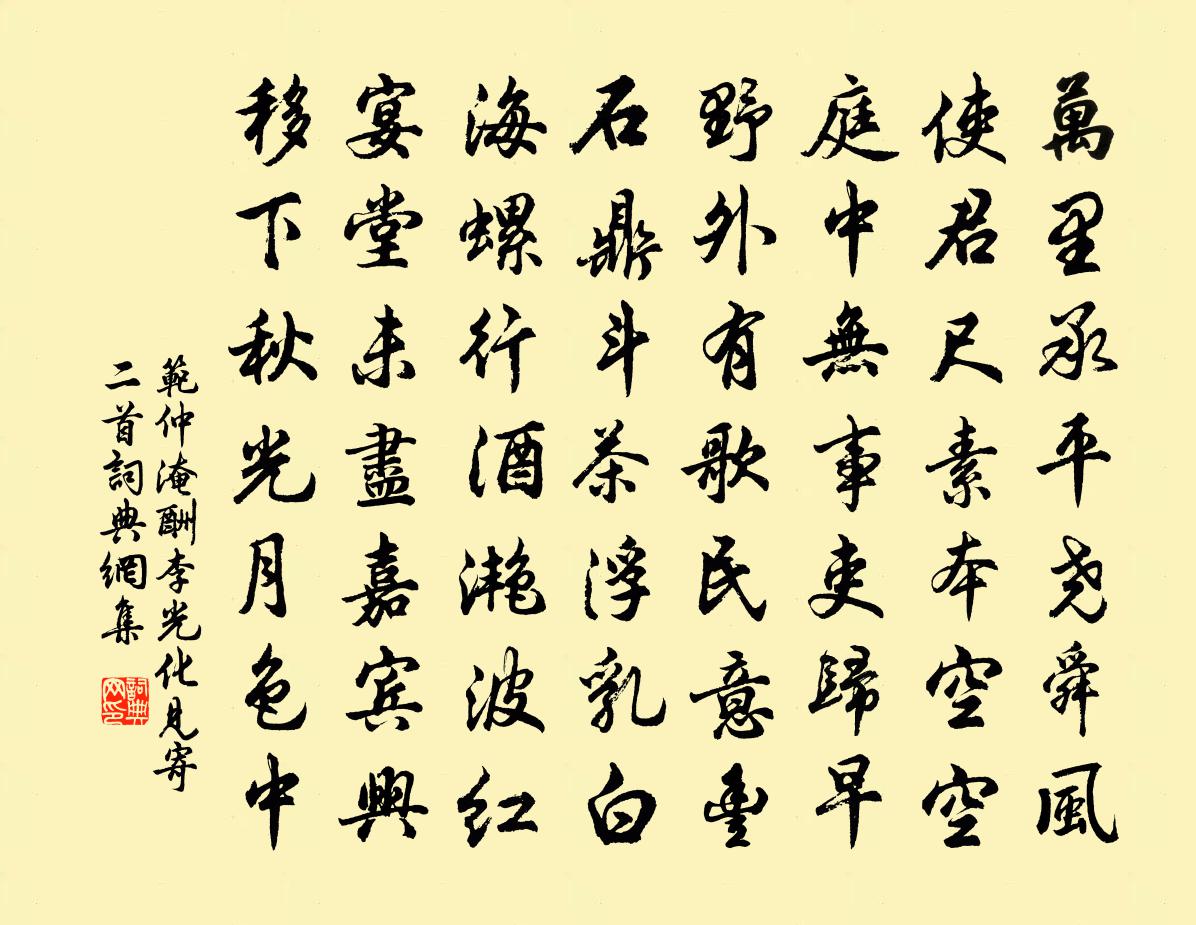 萬里承平尧舜風
使君尺素本空空
庭中無事吏歸早
野外有歌民意豊
石鼎斗茶浮乳白
海螺行酒滟波红
宴堂未盡嘉宾興
移下秋光月色中
範仲淹酬李光化見寄
二首詞典網集
詞典
网印